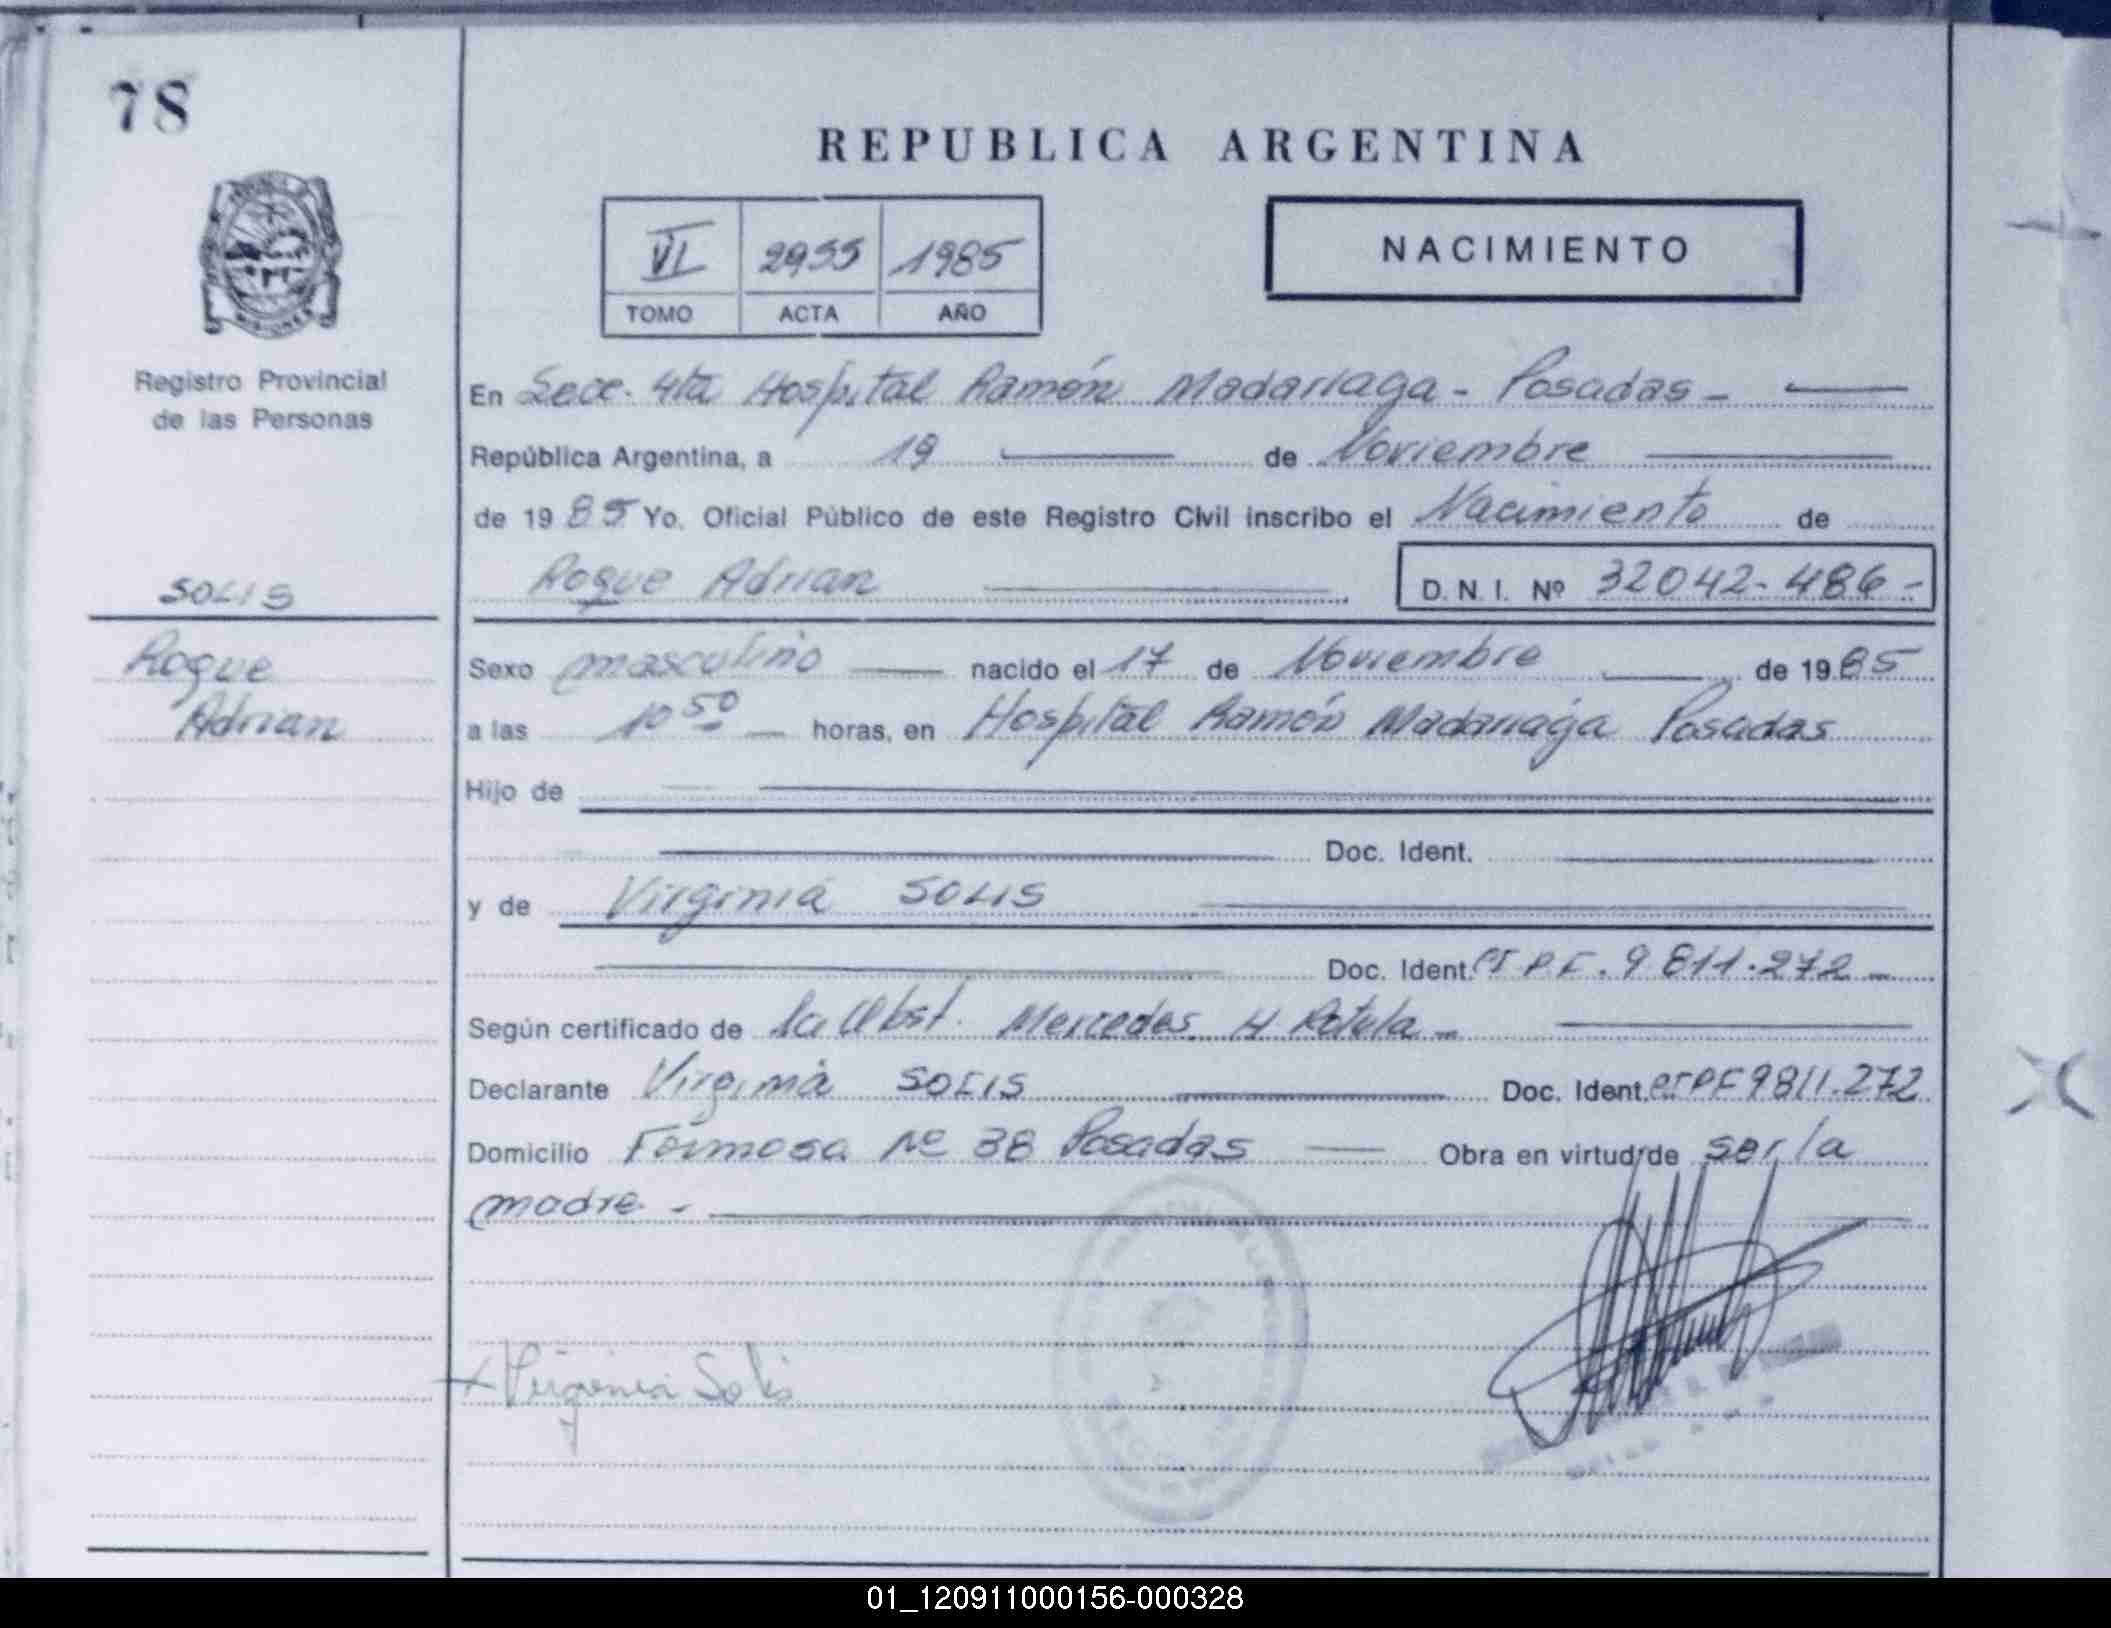 78
REPUBLICA ARGENTINA
VI 2955 1985
TOMO ACTA AÑO
NACIMIENTO
Registro Provincial
de las Personas
En Secc. 4ta Hospital Ramón Madariaga - Posadas -
República Argentina, a 19 de Noviembre
de 1985 Yo, Oficial Público de este Registro Civil inscribo el Nacimiento de
Roque Adrian D. N. I. Nº 32042-486-
SOLIS
Roque
Adrian
Sexo masculino nacido el 17 de Noviembre de 1985
a las 10 50 horas, en Hospital Ramón Madariaga Posadas
Hijo de
Doc. Ident.
y de Virginia SOLIS
Doc. Ident. 9811.272
Según certificado de la Obst. Mercedes H
Declarante Virginia SOLIS Doc. Ident. 9811.272
Domicilio Formosa Nº 38 Posadas Obra en virtud de ser la
madre.-
Virginia Solis
01_120911000156-000328